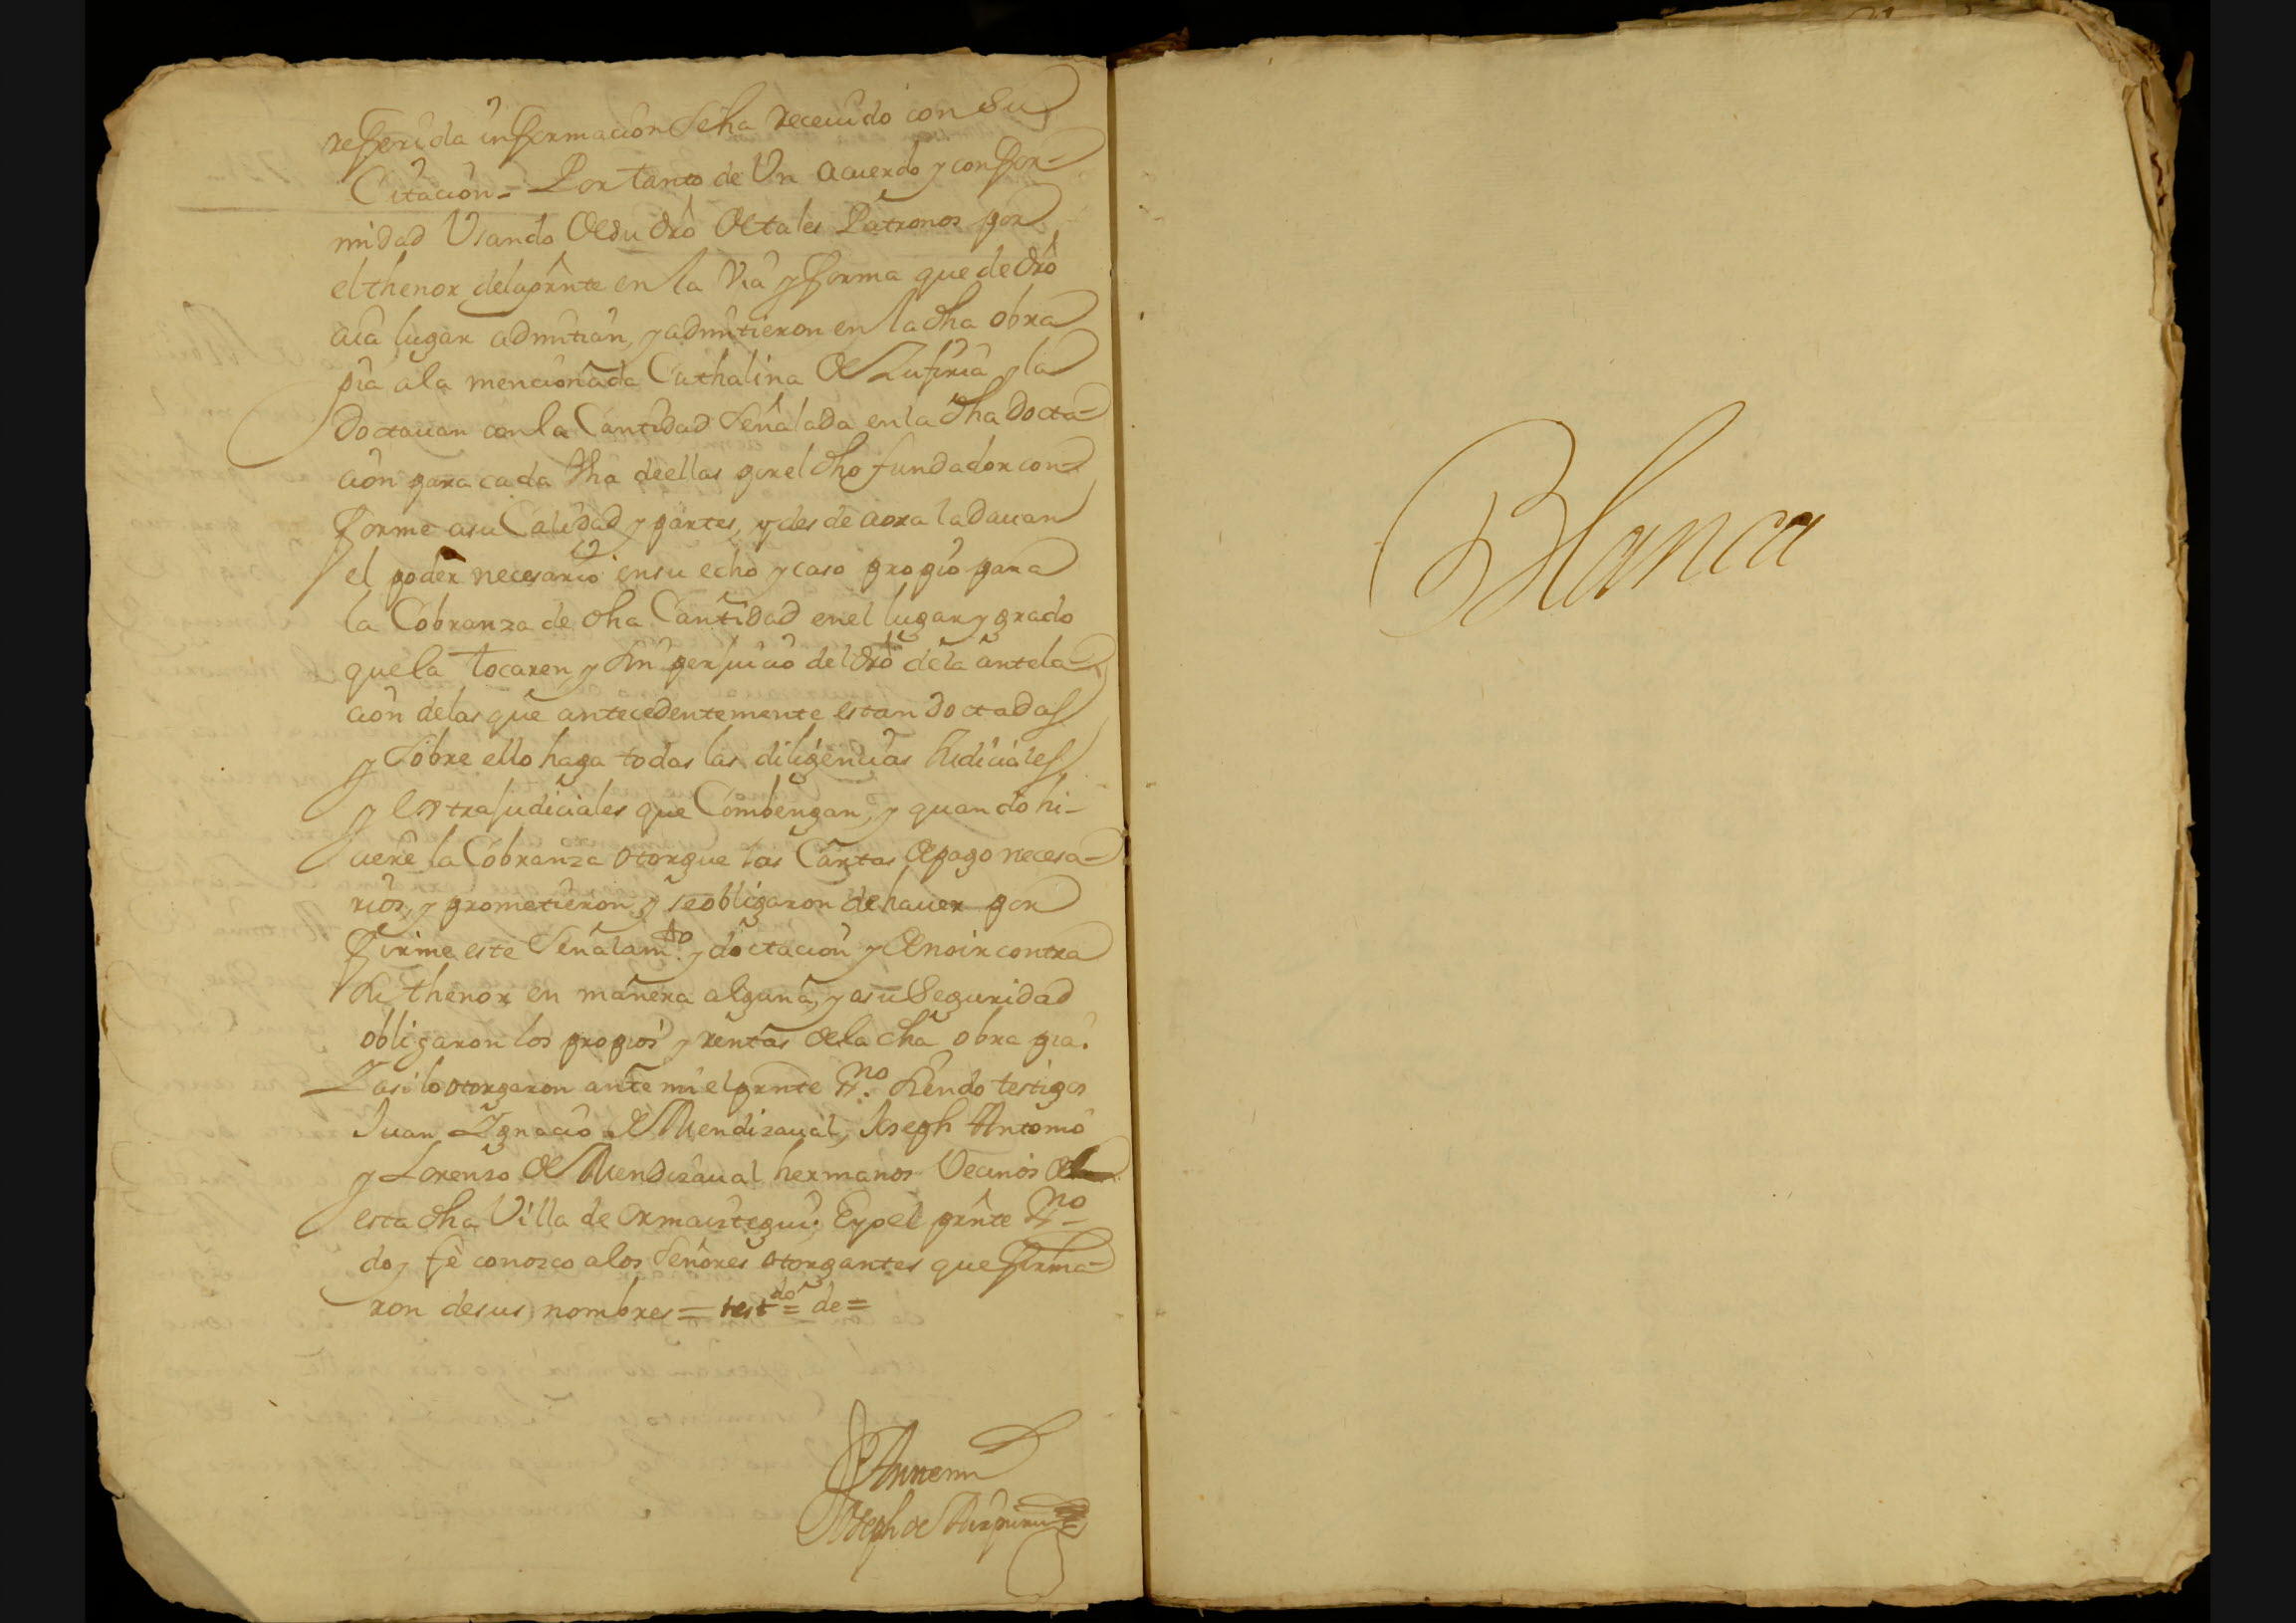 referida informacion Se ha receuido con Su
Citacion = Por tanto de Vn acuerdo y confor-
midad Vsando de su dro de tales Patronos por
el thenor de la prnte en la Via y forma que de dro
aia lugar admitian, y admitieron en la dha obra
pia a la mencionada Cathalina de Zufiria y la
Doctauan con la Cantidad Señalada en la dha Docta-
cion para cada Vna de ellas por el dho fundador con-
forme a su Calidad y partes, y des de aora la Dauan
el poder necesario en su echo y caso propio para
la Cobranza de dha Cantidad en el lugar y grado
que la tocaren y Sin perjuicio del dro de la antela-
cion de las que antecedentemente estan Doctadas
y Sobre ello haga todas las diligencias Judiciales
y extrajudiciales que Combengan, y quando hi-
ciere la Cobranza otorgue las Cartas de pago necesa-
rios, y prometieron y se obligaron de hauer por
firme este Señalamto y doctacion y de no ir contra
Su thenor en manera alguna, y a su Seguridad
obligaron los propios y rentas de la dha obra pia.
Y asi lo otorgaron ante mi el prnte Esno Siendo testigos
Juan Ygnacio de Mendizaual, Joseph Antonio
y Lorenzo de Mendizaual hermanos Vecinos de
esta dha Villa de Ormaiztegui; E yo el prnte Esno
doy fè conozco a los Señores otorgantes que firma-
ron de sus nombres = testdo = de =
Ante mi
Joseph de
Blanca